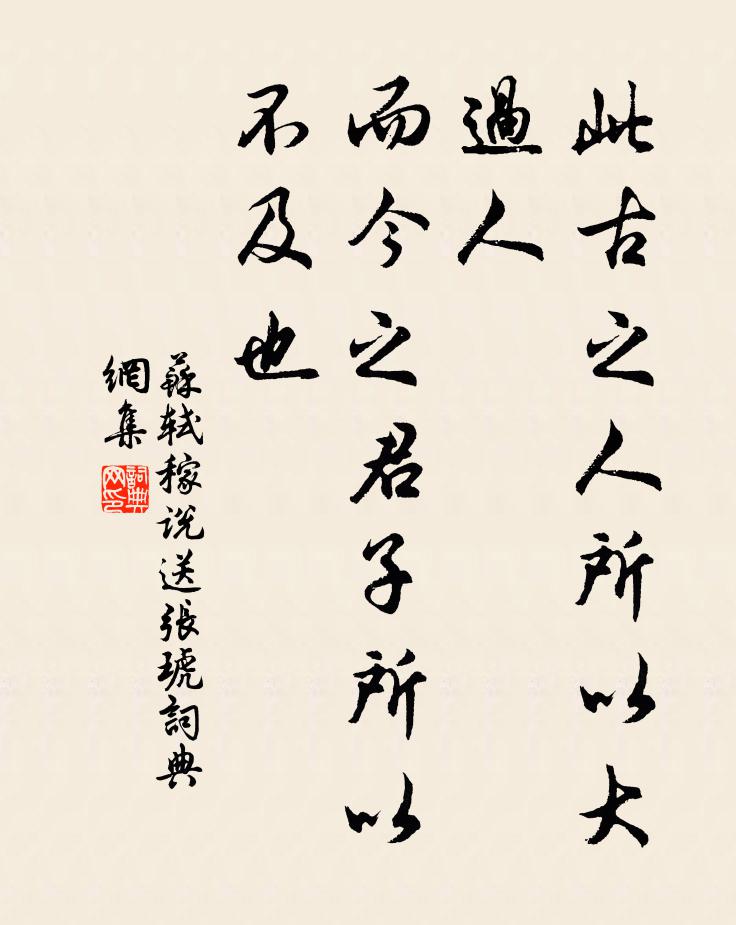 此古之人所以大
過人
而今之君子所以
不及也
蘇軾稼说送張琥詞典
網集
詞典
网印